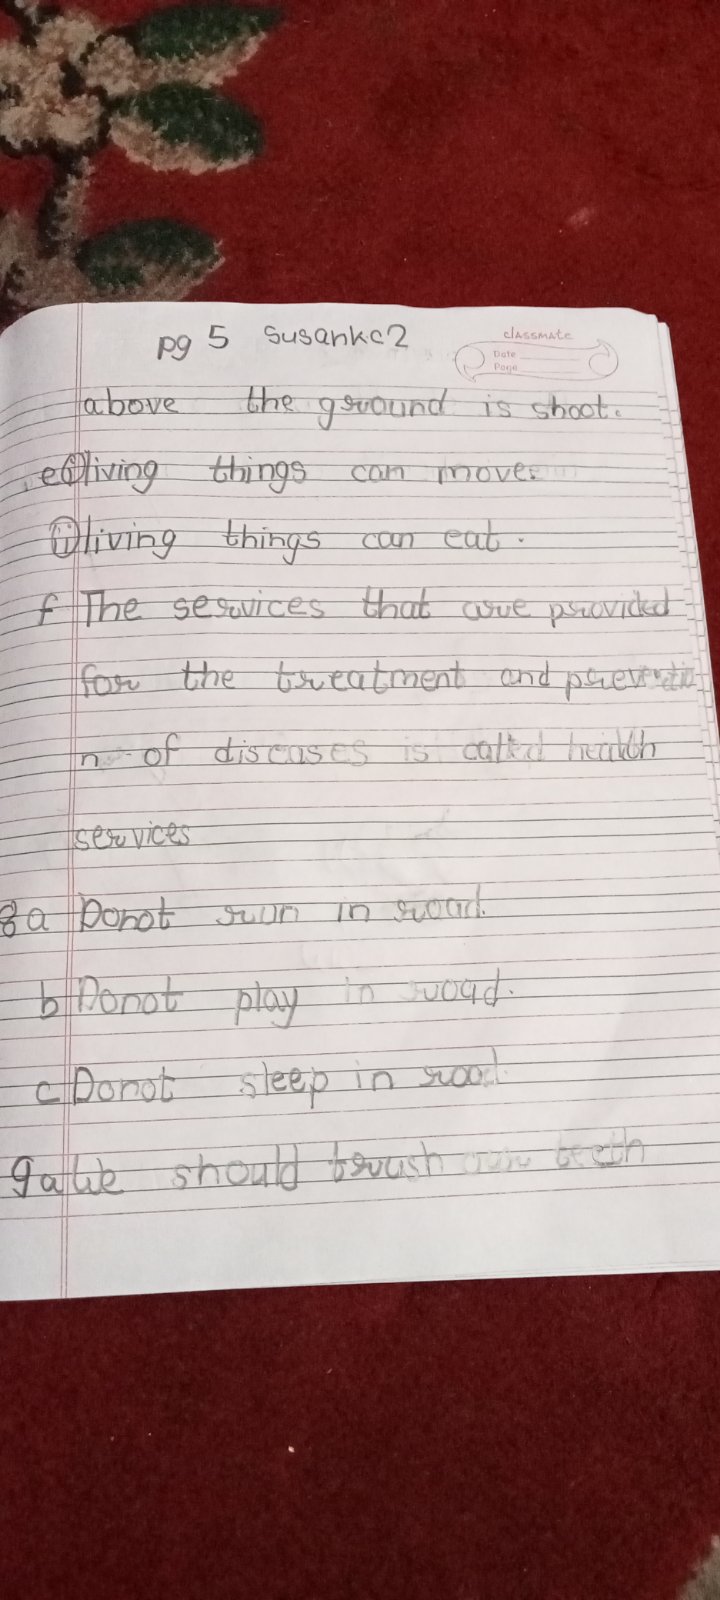 pg 5 Susankc2
classmate
Date
Page
above the ground is shoot.
e(i) living things can move.
(ii) living things can eat.
f The services that are provided
for the treatment and preventio
n of diseases is called health
services
8 a Donot run in road.
b Donot play in road.
c Donot sleep in road.
9 a We should brush our teeth